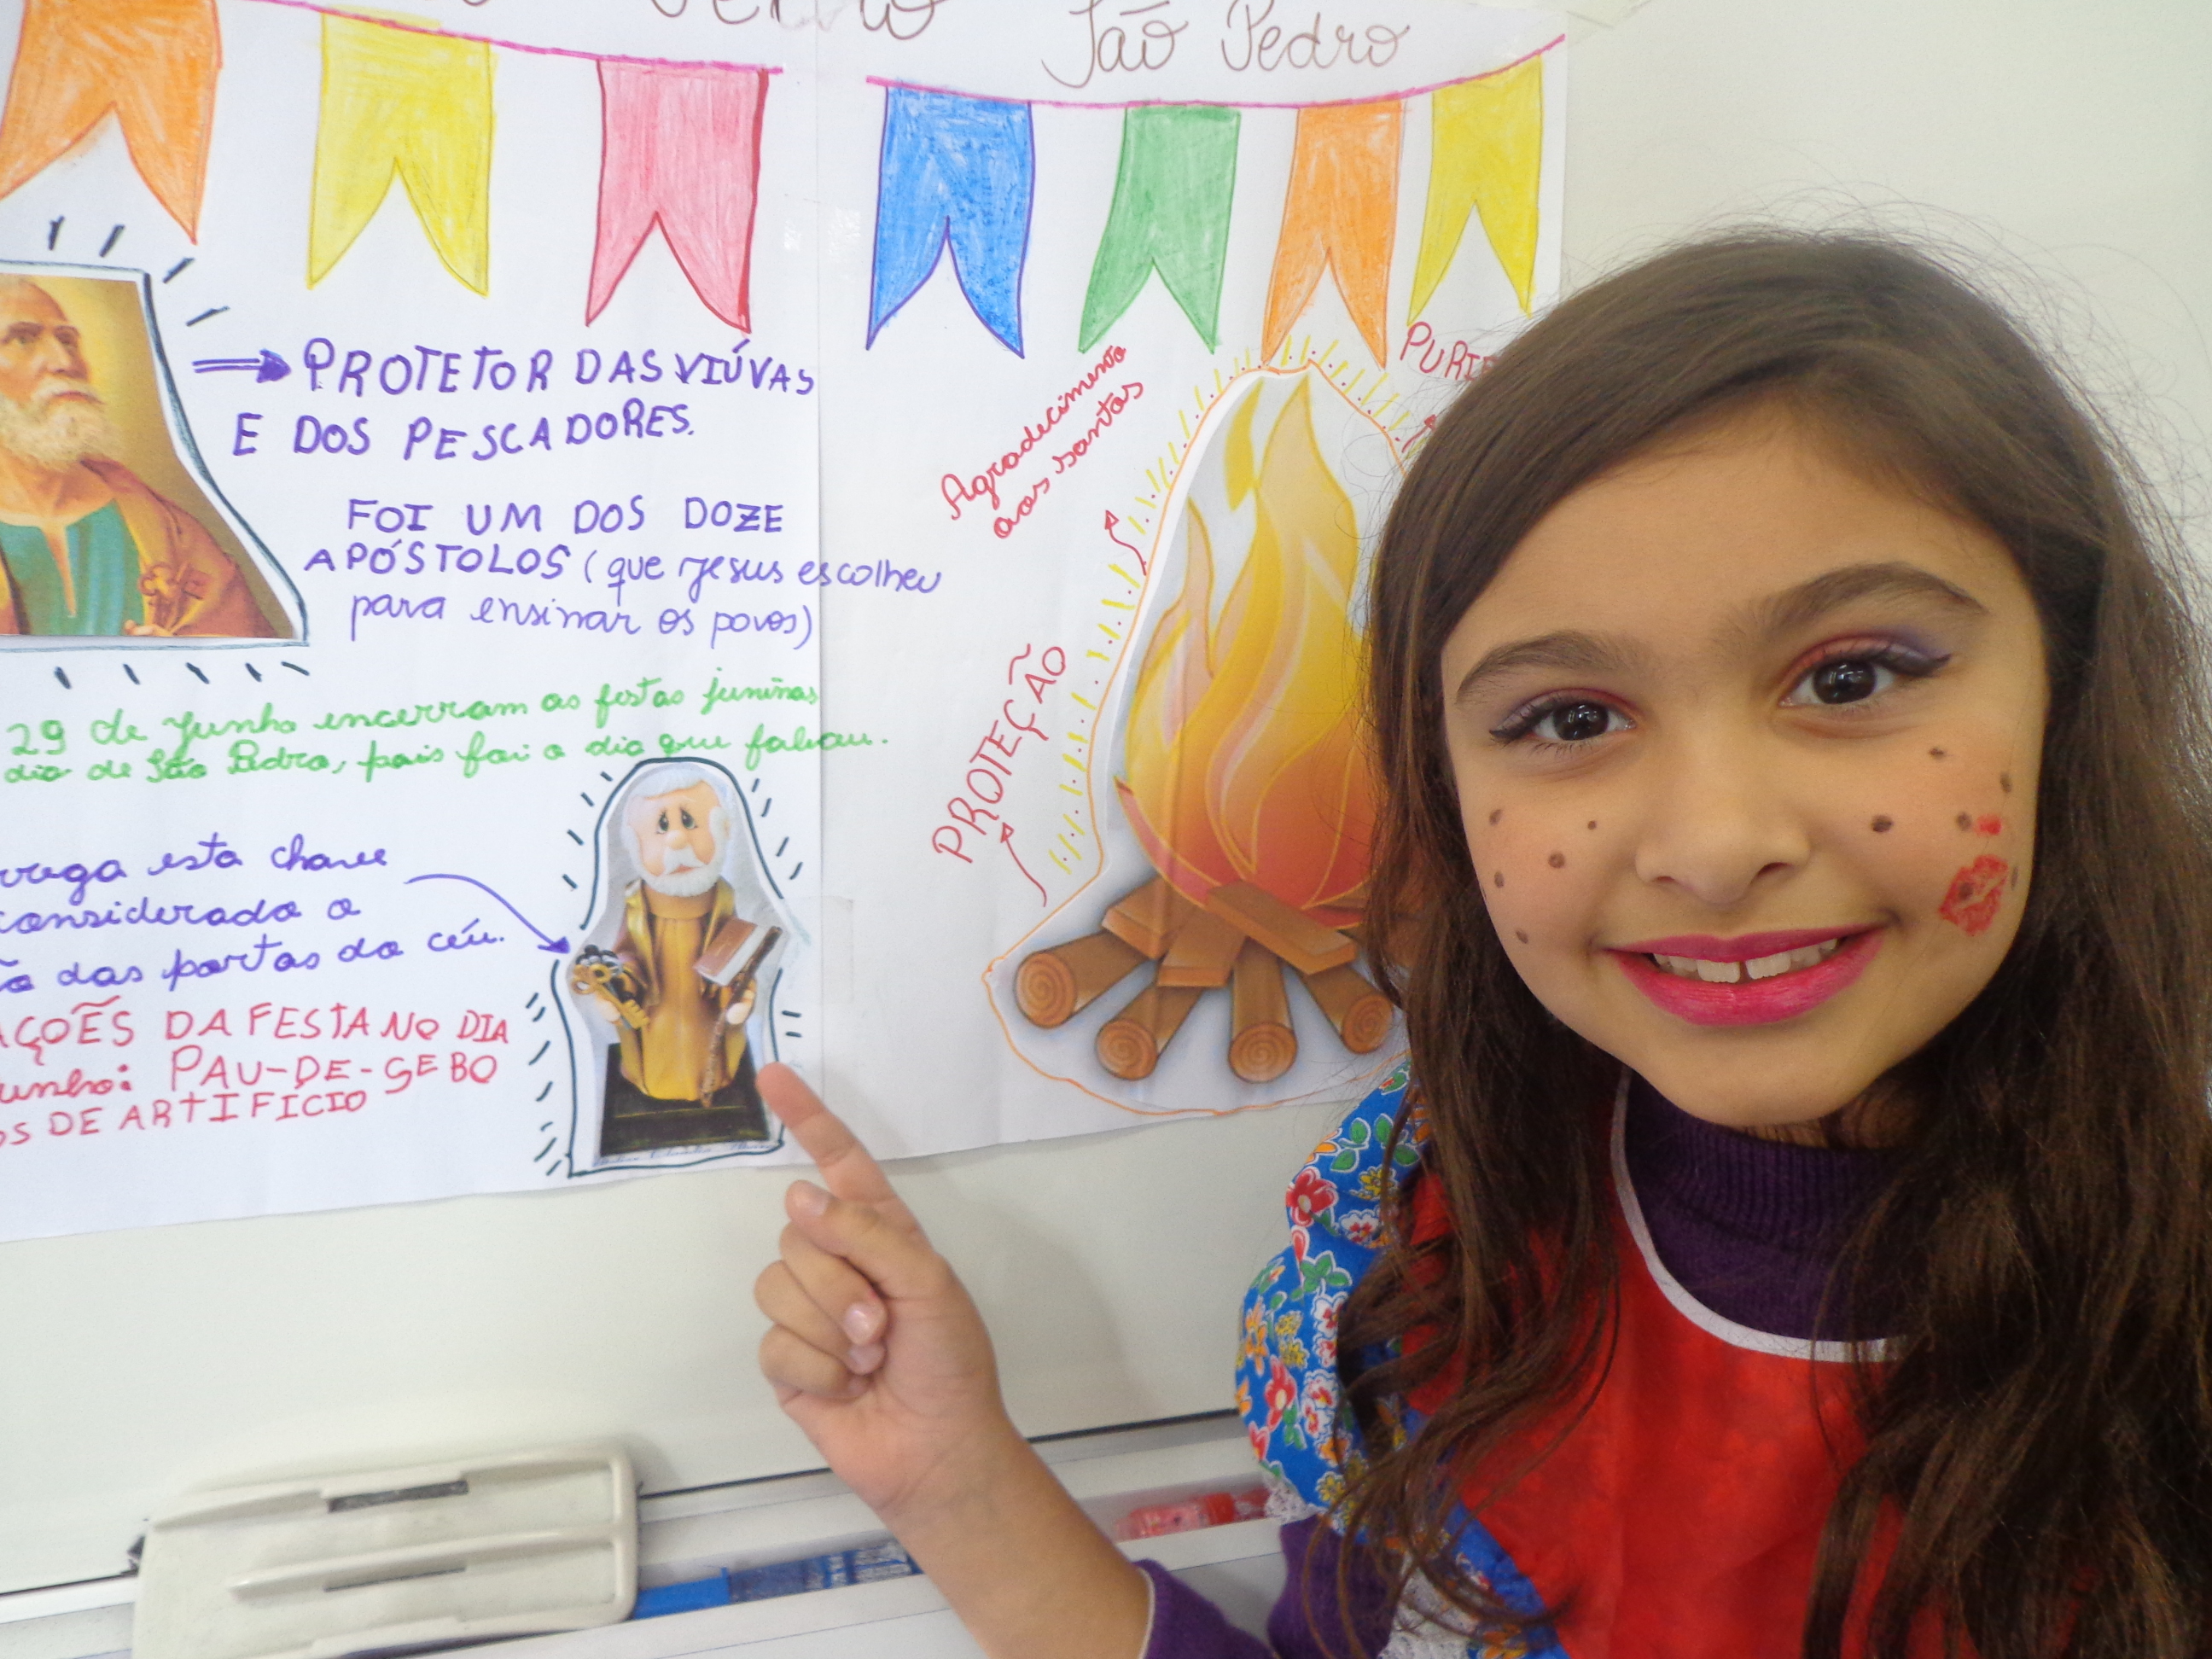 São Pedro
PROTETOR DAS VIÚVAS
E DOS PESCADORES.
FOI UM DOS DOZE
APÓSTOLOS (que Jesus escolheu
para ensinar os povos)
29 de Junho encerram as festas juninas
dia de São Pedro, pois foi o dia que
esta chave
considerado o
das portas do céu.
AÇÕES DA FESTA NO DIA
unho: PAU-DE-SEBO
OS DE ARTIFÍCIO
Agradecimento
aos santos
PROTEÇÃO
PURI